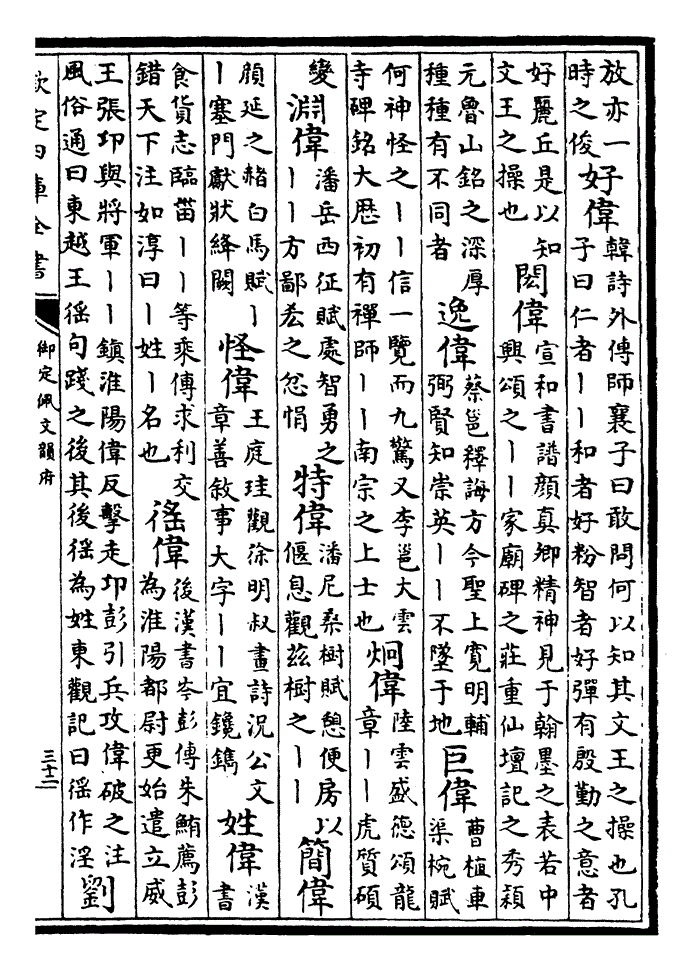 放亦一時之俊 好偉 韓詩外傳師襄子曰敢問何以知其文王之操也孔子曰仁者丨丨和者好粉智者好彈有殷勤之意者
好麗丘是以知文王之操也 閎偉 宣和書譜顔真卿精神見于翰墨之表若中興頌之丨丨家廟碑之莊重仙壇記之秀穎
元魯山銘之深厚種種有不同者 逸偉 蔡邕釋誨方今聖上寛明輔弼賢知崇英丨丨不墜于地 巨偉 曹植車渠椀賦
何神怪之丨丨信一覽而九驚又李邕大雲寺碑銘大厯初有禪師丨丨南宗之上士也 炯偉 陸雲盛德頌龍章丨丨虎質碩
變 淵偉 潘岳西征賦處智勇之丨丨方鄙㳒之忿悁 特偉 潘尼桑樹賦憩便房以偃息觀茲樹之丨丨 簡偉
顔延之赭白馬賦丨丨塞門獻狀絳闕 怪偉 王庭珪觀徐明叔畫詩況公文章善敘事大字丨丨宜鑱鐫 姓偉 漢書
食貨志臨菑丨丨等乘傳求利交錯天下注如淳曰丨姓丨名也 徭偉 後漢書岑彭傳朱鮪薦彭為淮陽都尉更始遣立威
王張卬與將軍丨丨鎮淮陽偉反擊走卬彭引兵攻偉破之注風俗通曰東越王徭句踐之後其後徭為姓東觀記曰徭作淫 劉
欽定四庫全書
御定佩文韻府
三十二